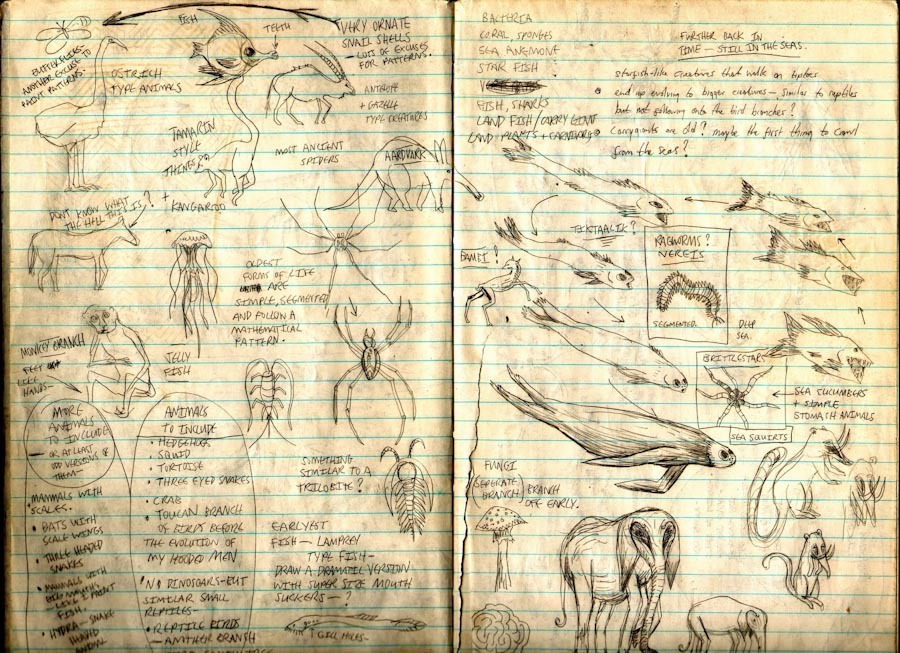 BUTTERFLIES.
ANOTHER EXCUSE TO
PAINT PATTERNS.
OSTRICH
TYPE ANIMALS
FISH
TEETH
VERY ORNATE
SNAIL SHELLS
- LOTS OF EXCUSES
FOR PATTERNS.
ANTELOPE
+ GAZELLE
TYPE CREATURES
TAMARIN
STYLE
THINGS?
+
KANGAROO
MOST ANCIENT
SPIDERS
AARDVARK
DON'T KNOW WHAT
THE HELL THIS IS?
OLDEST
FORMS OF LIFE
ARE
SIMPLE, SEGMENTED
AND FOLLOW A
MATHEMATICAL
PATTERN.
MONKEY BRANCH
FEET
LIKE
HANDS-
JELLY
FISH
MORE
ANIMALS
TO INCLUDE
- OR AT LEAST
ODD VERSIONS OF
THEM-
MAMMALS WITH
SCALES.
• BATS WITH
SCALE WINGS
• THREE HEADED
SNAKES
• MAMMALS WITH
LIKE I PAINT
FISH.
• HYDRA - SNAKE
ANIMAL
ANIMALS
TO INCLUDE
• HEDGEHOGS
• SQUID
• TORTOISE
• THREE EYED SNAKES
• CRAB
• TOUCAN BRANCH
OF BIRDS BEFORE
THE EVOLUTION OF
MY HOODED MEN
• NO DINOSAURS - BUT
SIMILAR SMALL
REPTILES-
• REPTILE BIRDS
- ANOTHER BRANCH
SOMETHING
SIMILAR TO A
TRILOBITE?
EARLYEST
FISH - LAMPREY
TYPE FISH-
DRAW A DRAMATIC VERSION
WITH SUPER SIZE MOUTH
SUCKERS - ?
GILL HOLES-
BACTERIA
CORAL, SPONGES
SEA ANEMONE
STAR FISH
FISH, SHARKS
LAND FISH/CARRY GIANT
LAND PLANTS + CARNIVORES
FURTHER BACK IN
TIME - STILL IN THE SEAS.
starfish-like creatures that walk on tiptoes
end up evolving to bigger creatures - similar to reptiles
but not following onto the bird branches?
Carrygiants are old? maybe the first thing to crawl
from the seas?
TIKTAALIK?
BAMBI?
RAGWORMS?
NEREIS
SEGMENTED
DEEP
SEA.
BRITTLESTARS
SEA CUCUMBERS
+ SIMPLE
STOMACH ANIMALS
SEA SQUIRTS
FUNGI
SEPERATE
BRANCH
BRANCH
OFF EARLY.